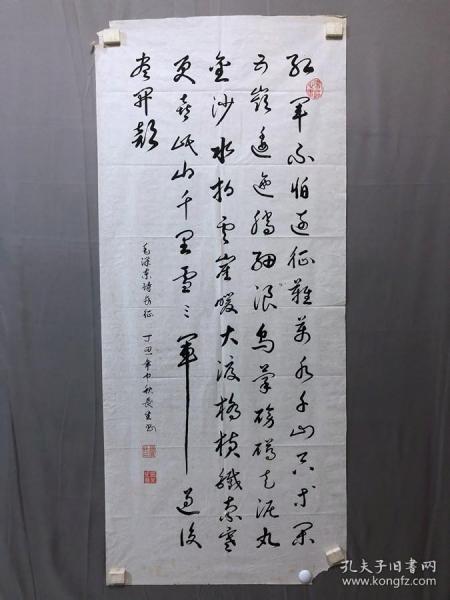 红军不怕远征难万水千山只等闲
五岭逶迤腾细浪乌蒙磅礴走泥丸
金沙水拍云崖暖大渡桥横铁索寒
更喜岷山千里雪三军过后
尽开颜
毛泽东诗长征 丁丑年中秋
孔夫子旧书网
www.kongfz.com